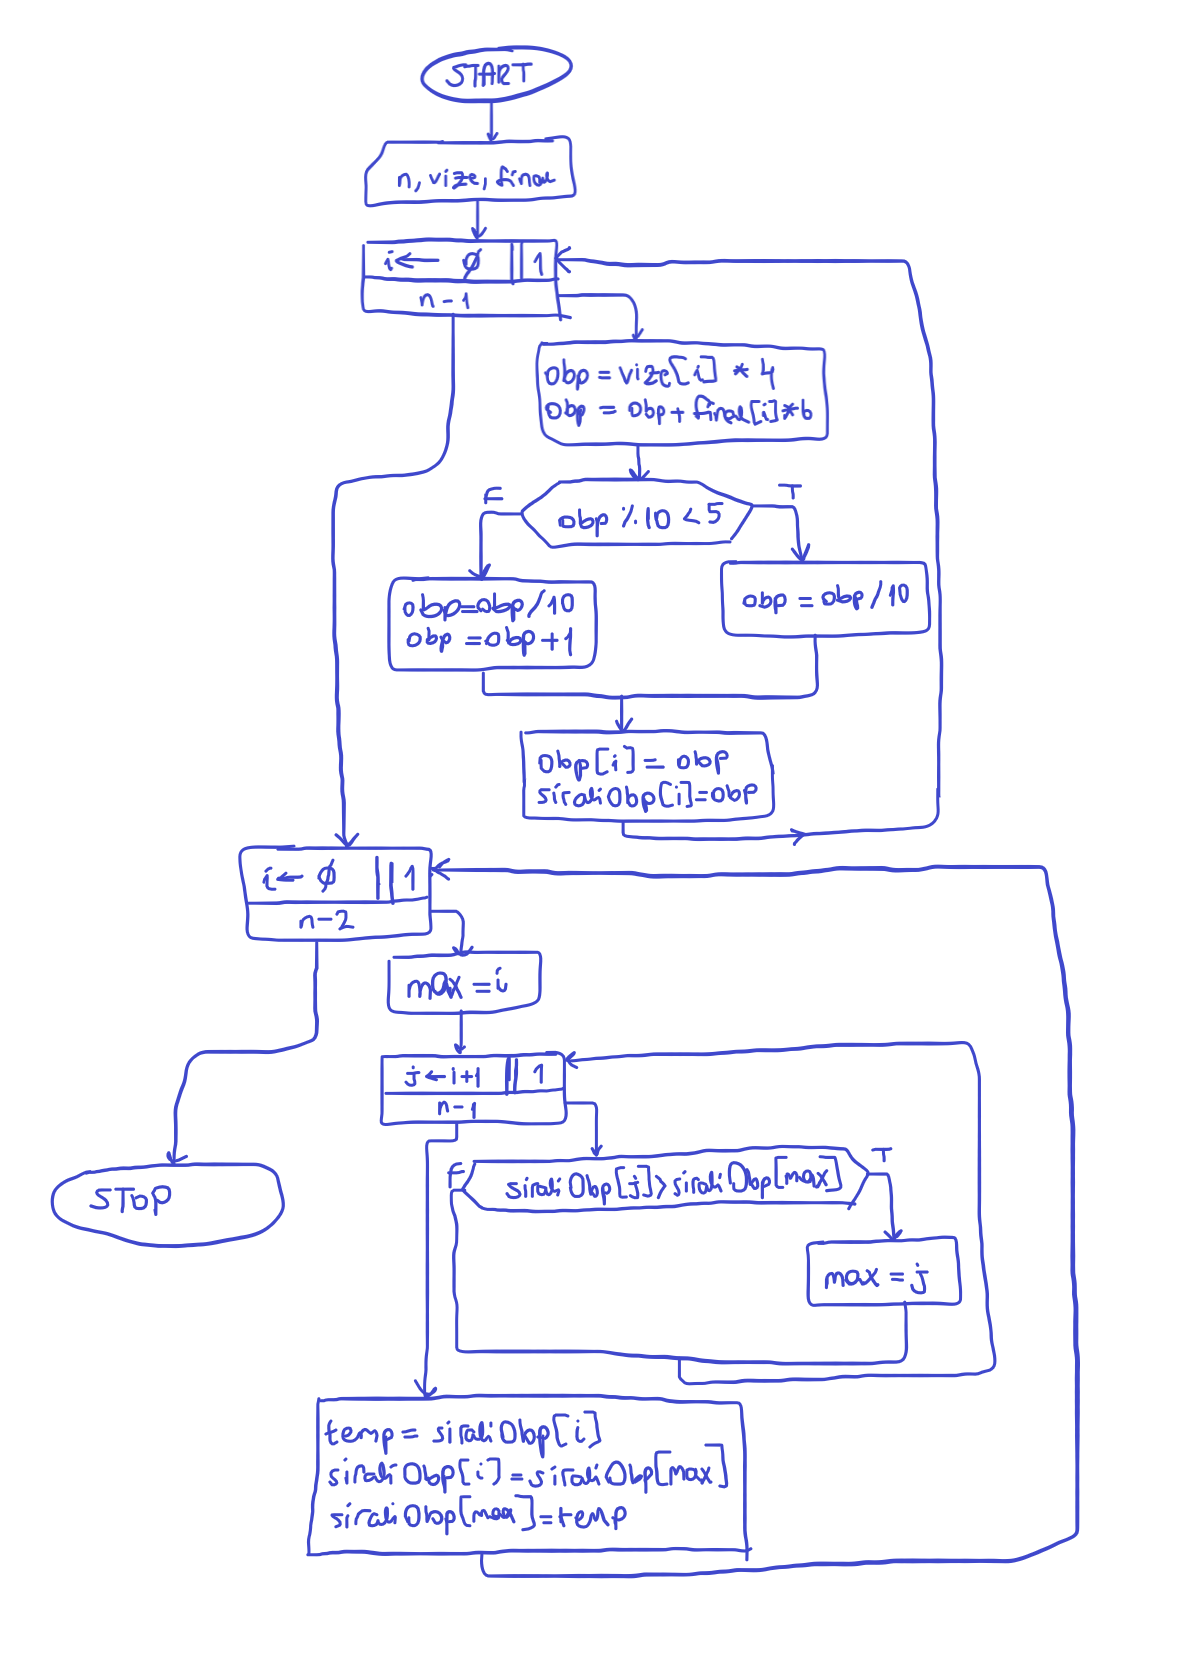 START
n, vize, final
i ← 0 || 1
n - 1
obp = vize[i] * 4
obp = obp + final[i] * 6
F
T
obp % 10 < 5
obp = obp / 10
obp = obp / 10
obp = obp + 1
obp[i] = obp
siraliObp[i] = obp
i ← 0 || 1
n - 2
max = i
j ← i + 1 || 1
n - 1
F
T
siraliObp[j] > siraliObp[max]
STOP
max = j
temp = siraliObp[i]
siraliObp[i] = siraliObp[max]
siraliObp[max] = temp